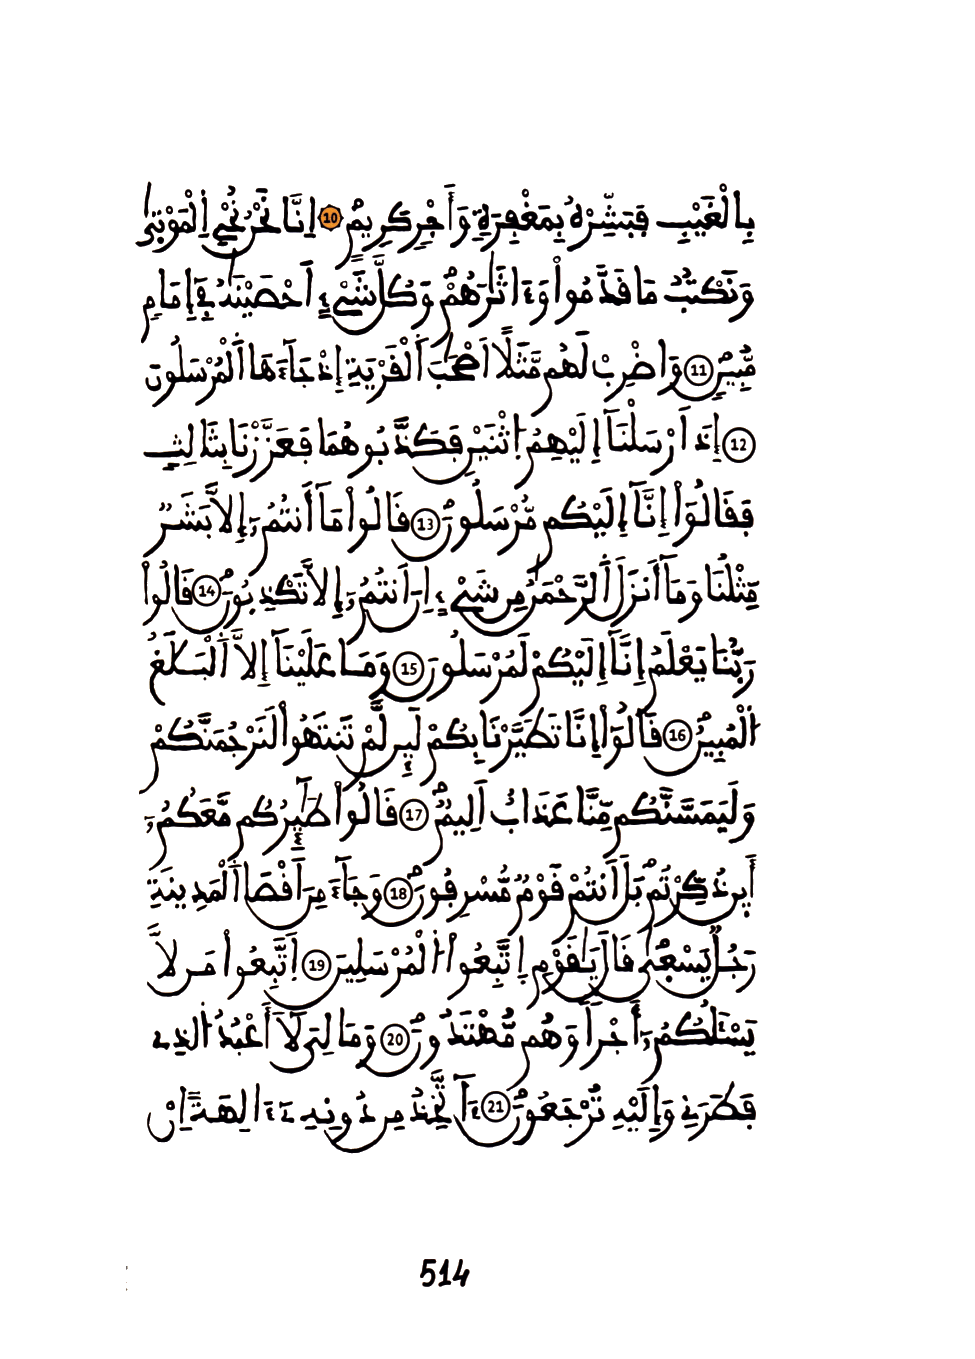 بِالْغَيْبِ فَبَشِّرْهُ بِمَغْفِرَةٖ وَأَجْرٖ كَرِيمٍ 10 اِنَّا نَحْنُ نُحْيِ اِلْمَوْتۭيٰ
وَنَكْتُبُ مَا قَدَّمُواْ وَءَاثَٰرَهُمْ وَكُلَّ شَےْءٍ اَحْصَيْنَٰهُ فِےٓ إِمَامٖ
مُّبِينٖ 11 وَاضْرِبْ لَهُم مَّثَلًا اَصْحَٰبَ اَلْقَرْيَةِ إِذْ جَآءَهَا اَلْمُرْسَلُونَ
12 إِذَ اَرْسَلْنَآ إِلَيْهِمُ اُ۪ثْنَيْنِ فَكَذَّبُوهُمَا فَعَزَّزْنَا بِثَالِثٖ
فَقَالُوٓاْ إِنَّآ إِلَيْكُم مُّرْسَلُونَ 13 قَالُواْ مَآ أَنتُمُۥٓ إِلَّا بَشَرٞ
مِّثْلُنَا وَمَآ أَنزَلَ اَلرَّحْمَٰنُ مِن شَےْءٍ اِنَ اَنتُمُۥٓ إِلَّا تَكْذِبُونَ 14 قَالُواْ
رَبُّنَا يَعْلَمُ إِنَّآ إِلَيْكُمْ لَمُرْسَلُونَ 15 وَمَا عَلَيْنَآ إِلَّا اَلْبَلَٰغُ
اُ۬لْمُبِينُ 16 قَالُوٓاْ إِنَّا تَطَيَّرْنَا بِكُمْ لَئِن لَّمْ تَنتَهُواْ لَنَرْجُمَنَّكُمْ
وَلَيَمَسَّنَّكُم مِّنَّا عَذَابٌ اَلِيمٞ 17 قَالُواْ طَٰٓئِرُكُم مَّعَكُمُۥٓ
أَئِن ذُكِّرْتُم بَلَ اَنتُمْ قَوْمٞ مُّسْرِفُونَ 18 وَجَآءَ مِنَ اَقْصَا اَلْمَدِينَةِ
رَجُلٞ يَسْع۪يٰ قَالَ يَٰقَوْمِ اِ۪تَّبِعُواْ اُ۬لْمُرْسَلِينَ 19 اَ۪تَّبِعُواْ مَن لَّا
يَسْـَٔلُكُمُۥٓ أَجْراٗ وَهُم مُّهْتَدُونَ 20 وَمَا لِيَ لَآ أَعْبُدُ اُ۬لذِے
فَطَرَنِے وَإِلَيْهِ تُرْجَعُونَ 21 ءَآتَّخِذُ مِن دُونِهِۦٓ ءَالِهَةً اِنْ
514